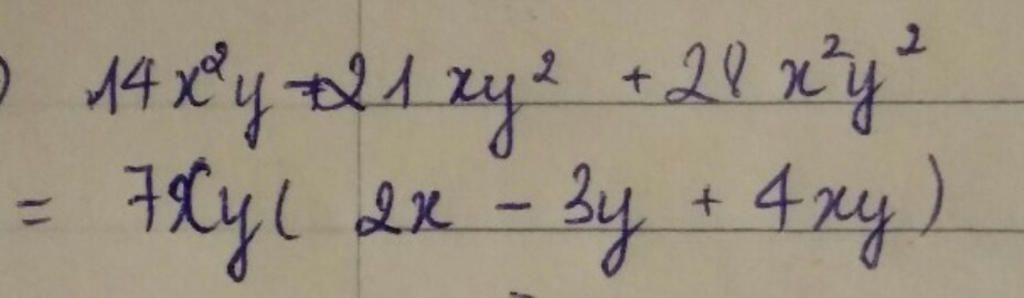 ) 14x²y - 21xy² + 28x²y²
= 7xy( 2x - 3y + 4xy )